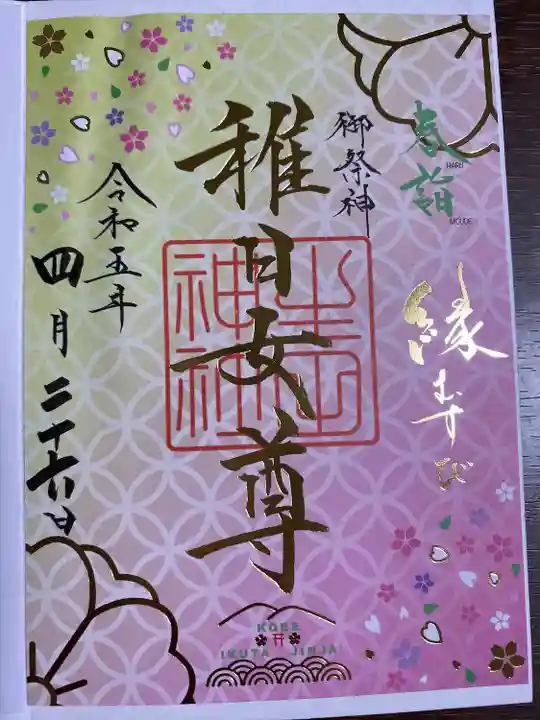 春詣
HARU
MOUDE
縁むすび
御祭神
稚日女尊
生田
神社
令和五年
四月二十六日
KOBE
IKUTA JINJA